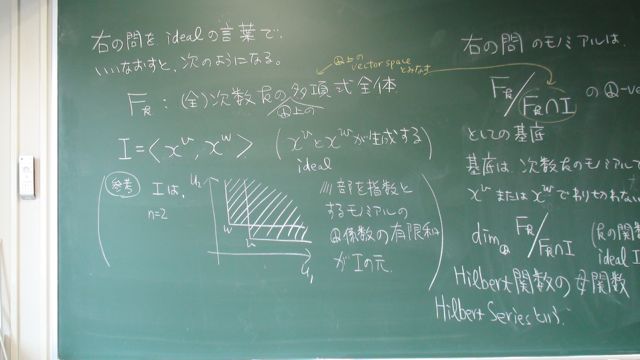 右の問を idealの言葉で
いいなおすと、次のようになる。
ℚ上の
vector space
とみなす
F_k : (全)次数kの多項式全体
ℚ上の
I = < x^u, x^w > ( x^u と x^w が生成する
ideal
参考 Iは、
n=2
u₂
w
u
u₁
部を指数と
するモノミアルの
ℚ係数の有限和
がIの元.
右の問のモノミアルは、
F_k / F_k∩I のℚ-ve
としての基底
基底は、次数kのモノミアルで
x^u または x^w でわりきれない
dim_ℚ F_k / F_k∩I (kの関数
ideal I
Hilbert関数の母関数
Hilbert Seriesという.